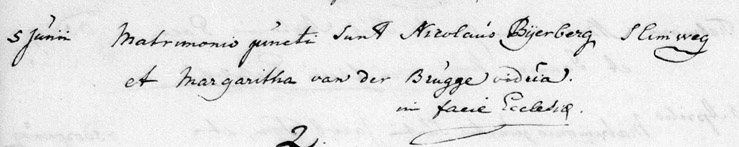 5 Junii Matrimonio juncti sunt Nicolaús Bÿerberg Slimweg
et Margaritha van der Brúgge vidúa.
in facie Ecclesiæ.
2.